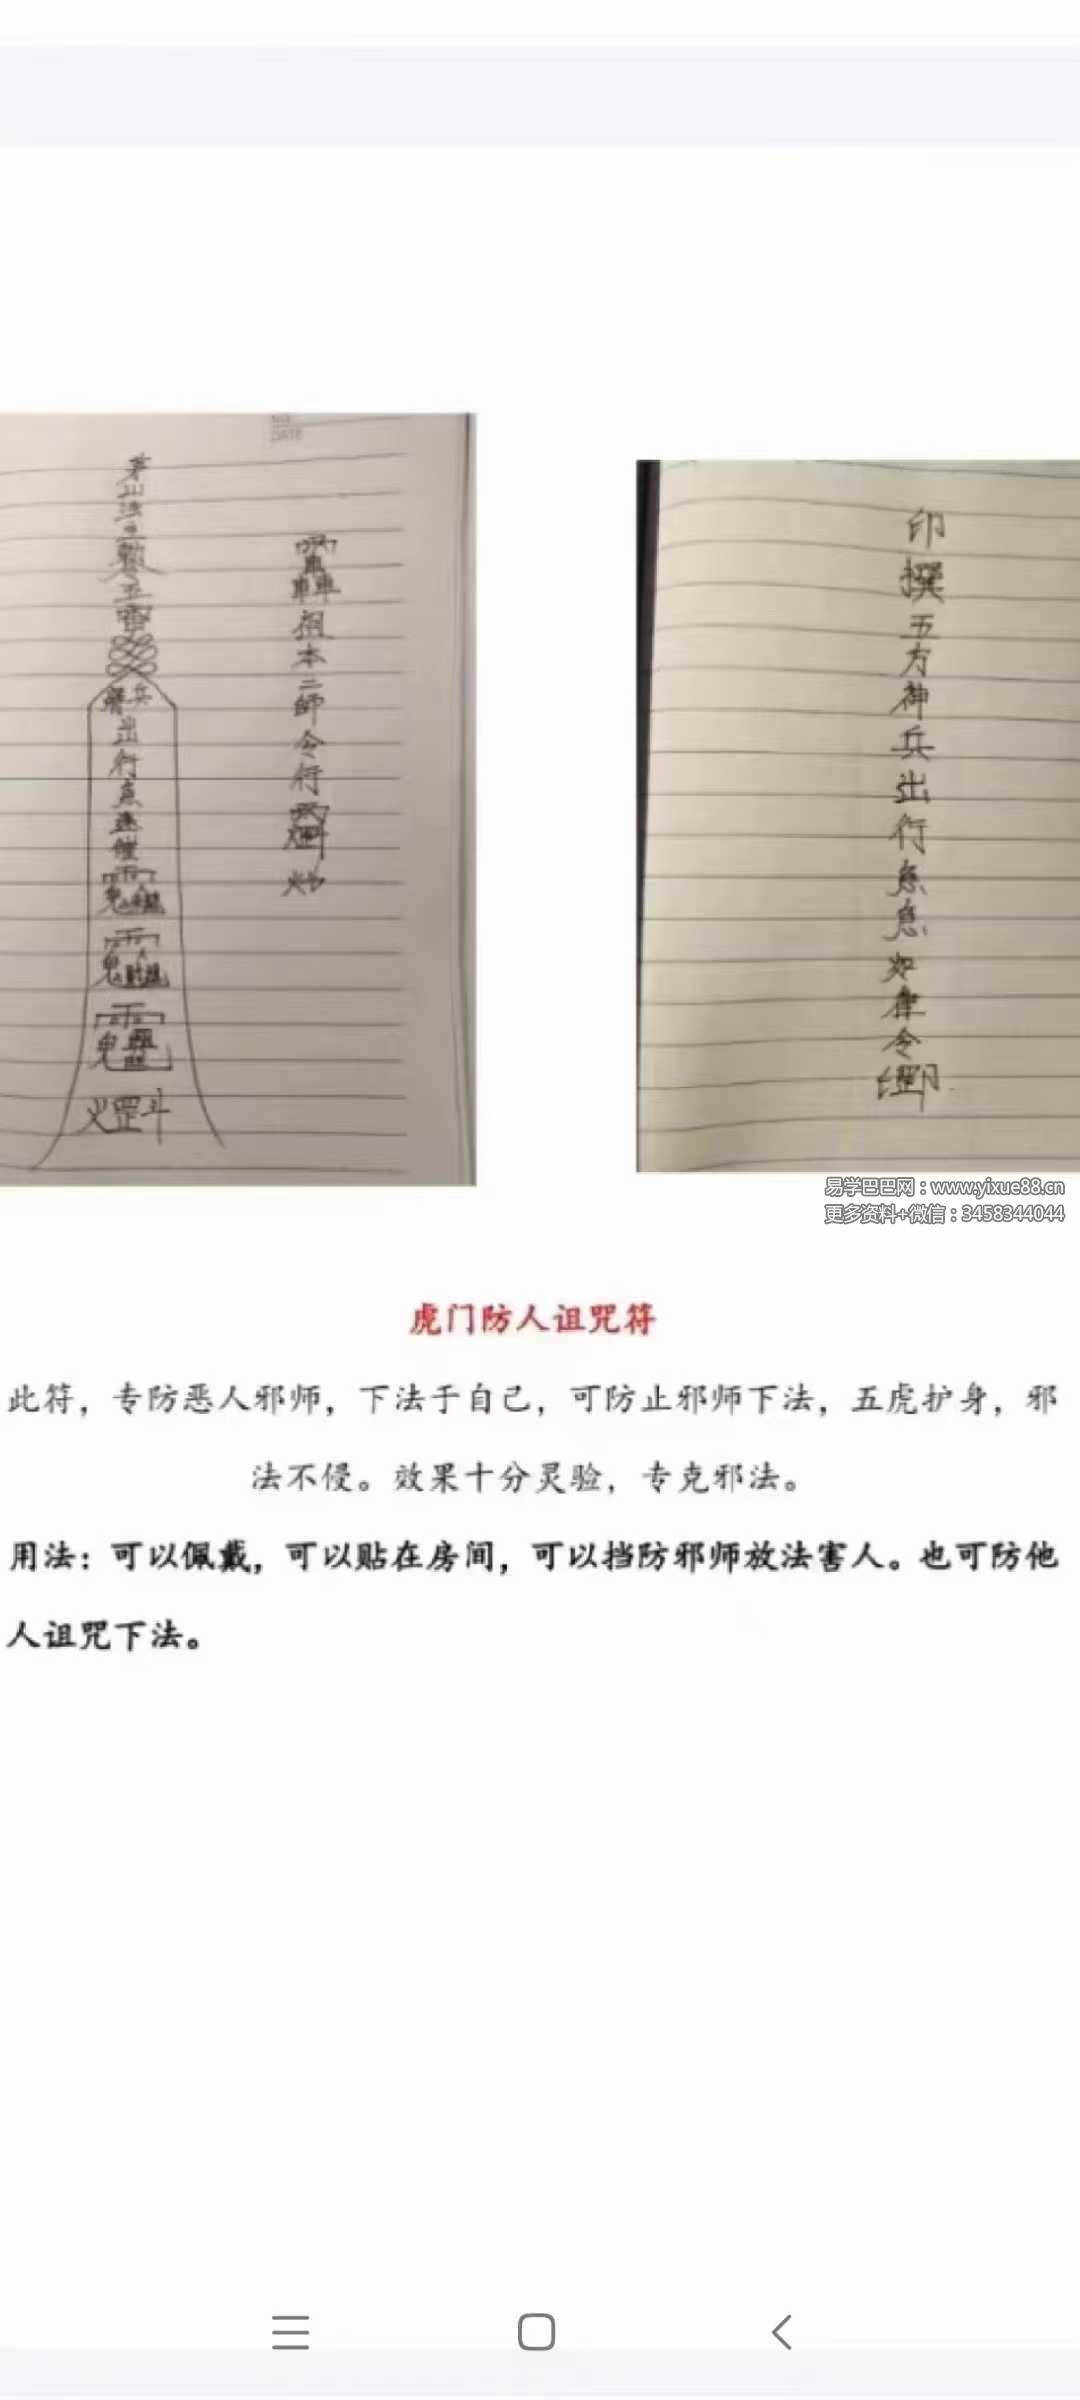 茅山法主敕令五雷
兵
出行急速催
火罡斗
本二師令行
印撰五方神兵出行急急如律令
易学巴巴网：www.yixue88.cn
更多资料+微信：3458344044
虎门防人诅咒符
此符，专防恶人邪师，下法于自己，可防止邪师下法，五虎护身，邪
法不侵。效果十分灵验，专克邪法。
用法：可以佩戴，可以贴在房间，可以挡防邪师放法害人。也可防他
人诅咒下法。